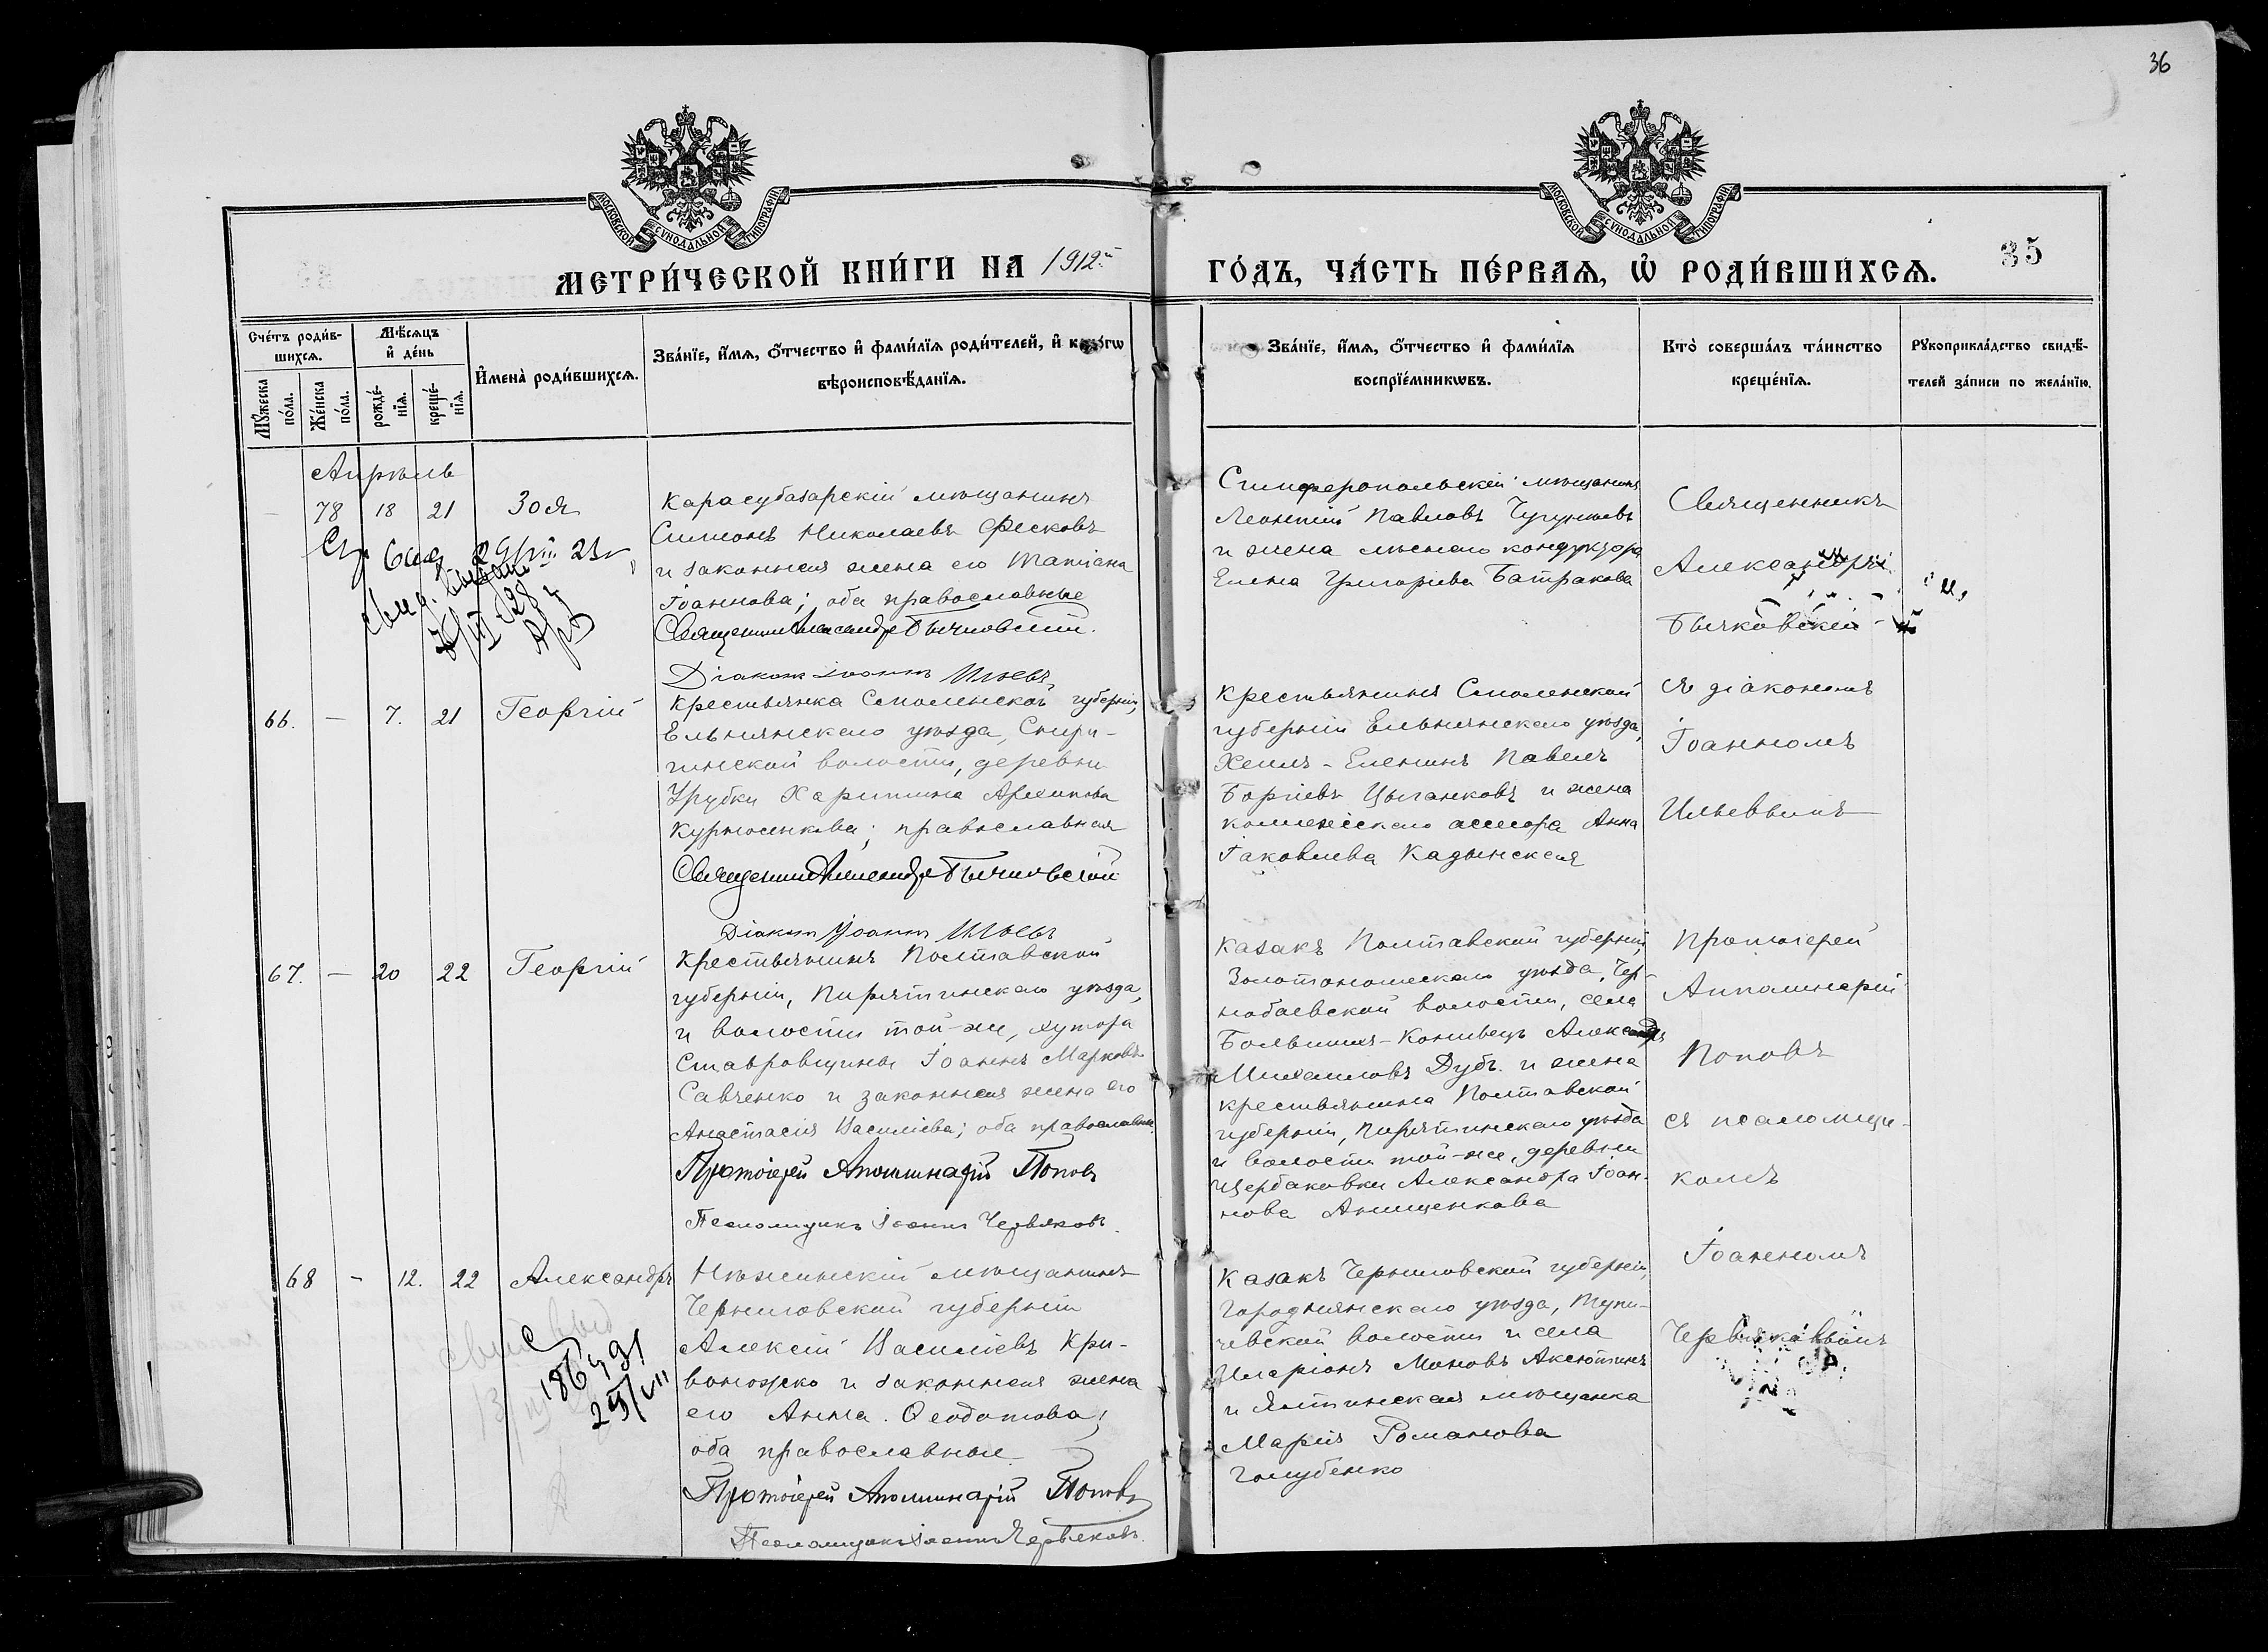 36
МОСКОВСКОЙ СѴНОДАЛЬНОЙ ТИПОГРАФІИ
МОСКОВСКОЙ СѴНОДАЛЬНОЙ ТИПОГРАФІИ
МЕТРИ́ЧЕСКОЙ КНИ́ГИ НА 1912й
ГО́ДЪ, ЧА́СТЬ ПЕ́РВАѦ, Ѡ҆ РОДИ́ВШИХСѦ.
35
Сче́тъ роди́в-
шихсѧ.
Мѣ́сѧцъ
и҆ де́нь
Мꙋ́жеска
по́ла.
Же́нска
по́ла.
рожде́-
нїѧ.
креще́-
нїѧ.
И҆мена̀ роди́вшихсѧ.
Зва́нїе, и҆́мѧ, ѻ҆́тчество и҆ фами́лїѧ роди́телей, и҆
вѣроисповѣ́данїѧ.
Зва́нїе, и҆́мѧ, ѻ҆́тчество и҆ фами́лїѧ
воспрїе́мникѡвъ.
Кто̀ соверша́лъ та́инство
креще́нїѧ.
Рꙋкоприкла́дство свидѣ́-
телей за́писи по жела́нїю.
Апрѣль
78 18 21 Зоя
Карасубазарскій мѣщанинъ
Симеонъ Николаевъ Фесковъ
и законная жена его Татіана
Іоаннова; оба православные
Священникъ Александръ Бычковскій.
Діаконъ Іоаннъ Ильевъ
Симферопольскій мѣщанинъ
Леонтій Павловъ
и жена лѣснаго кондуктора
Елена Григорьева Батракова
Священникъ
Александръ
Бычковскій
66. — 7. 21 Георгій
Крестьянка Смоленской губерніи,
Ельнянскаго уѣзда,
волости, деревни
Харитина Архипова
православная
Священникъ Александръ Бычковскій
Діаконъ Іоаннъ Ильевъ
Крестьянинъ Смоленской
губерніи Ельнянскаго уѣзда,
Павелъ
Цыганковъ и жена
коллежскаго ассесора Анна
Іаковлева Кадынская
съ діакономъ
Іоанномъ
Ильевымъ
67. — 20 22 Георгій
Крестьянинъ Полтавской
губерніи, Пирятинскаго уѣзда,
и волости той-же, хутора
Ставровщины Іоаннъ Марковъ
Савченко и законная жена его
Анастасія Василіева; оба православные.
Протоіерей Аполлинарій Поповъ
Псаломщикъ Іоаннъ Червяковъ.
Казакъ Полтавской губерніи,
Золотоношскаго уѣзда, Чер-
нобаевской волости, села
Большихъ-Канивецъ Александръ
Михаиловъ Дубъ и жена
крестьянина Полтавской
губерніи, Пирятинскаго уѣзда
и волости той-же, деревни
Щербаковки Александра Іоан-
нова Анищенкова
Протоіерей
Апполинарій
Поповъ
съ псаломщи-
комъ
Іоанномъ
Червяковымъ
68 - 12. 22 Александръ
Нѣжинскій мѣщанинъ
Черниговской губерніи
Алексій Василіевъ Кри-
воножко и законная жена
его Анна Ѳеодотова;
оба православные
Протоіерей Аполлинарій Поповъ
Псаломщикъ Іоаннъ Червяковъ.
Казакъ Черниговской губерніи,
Городнянскаго уѣзда, Тупи-
чевской волости и села
Иларіонъ Аксютинъ
и Ялтинская мѣщанка
Марія Романова
Голубенко